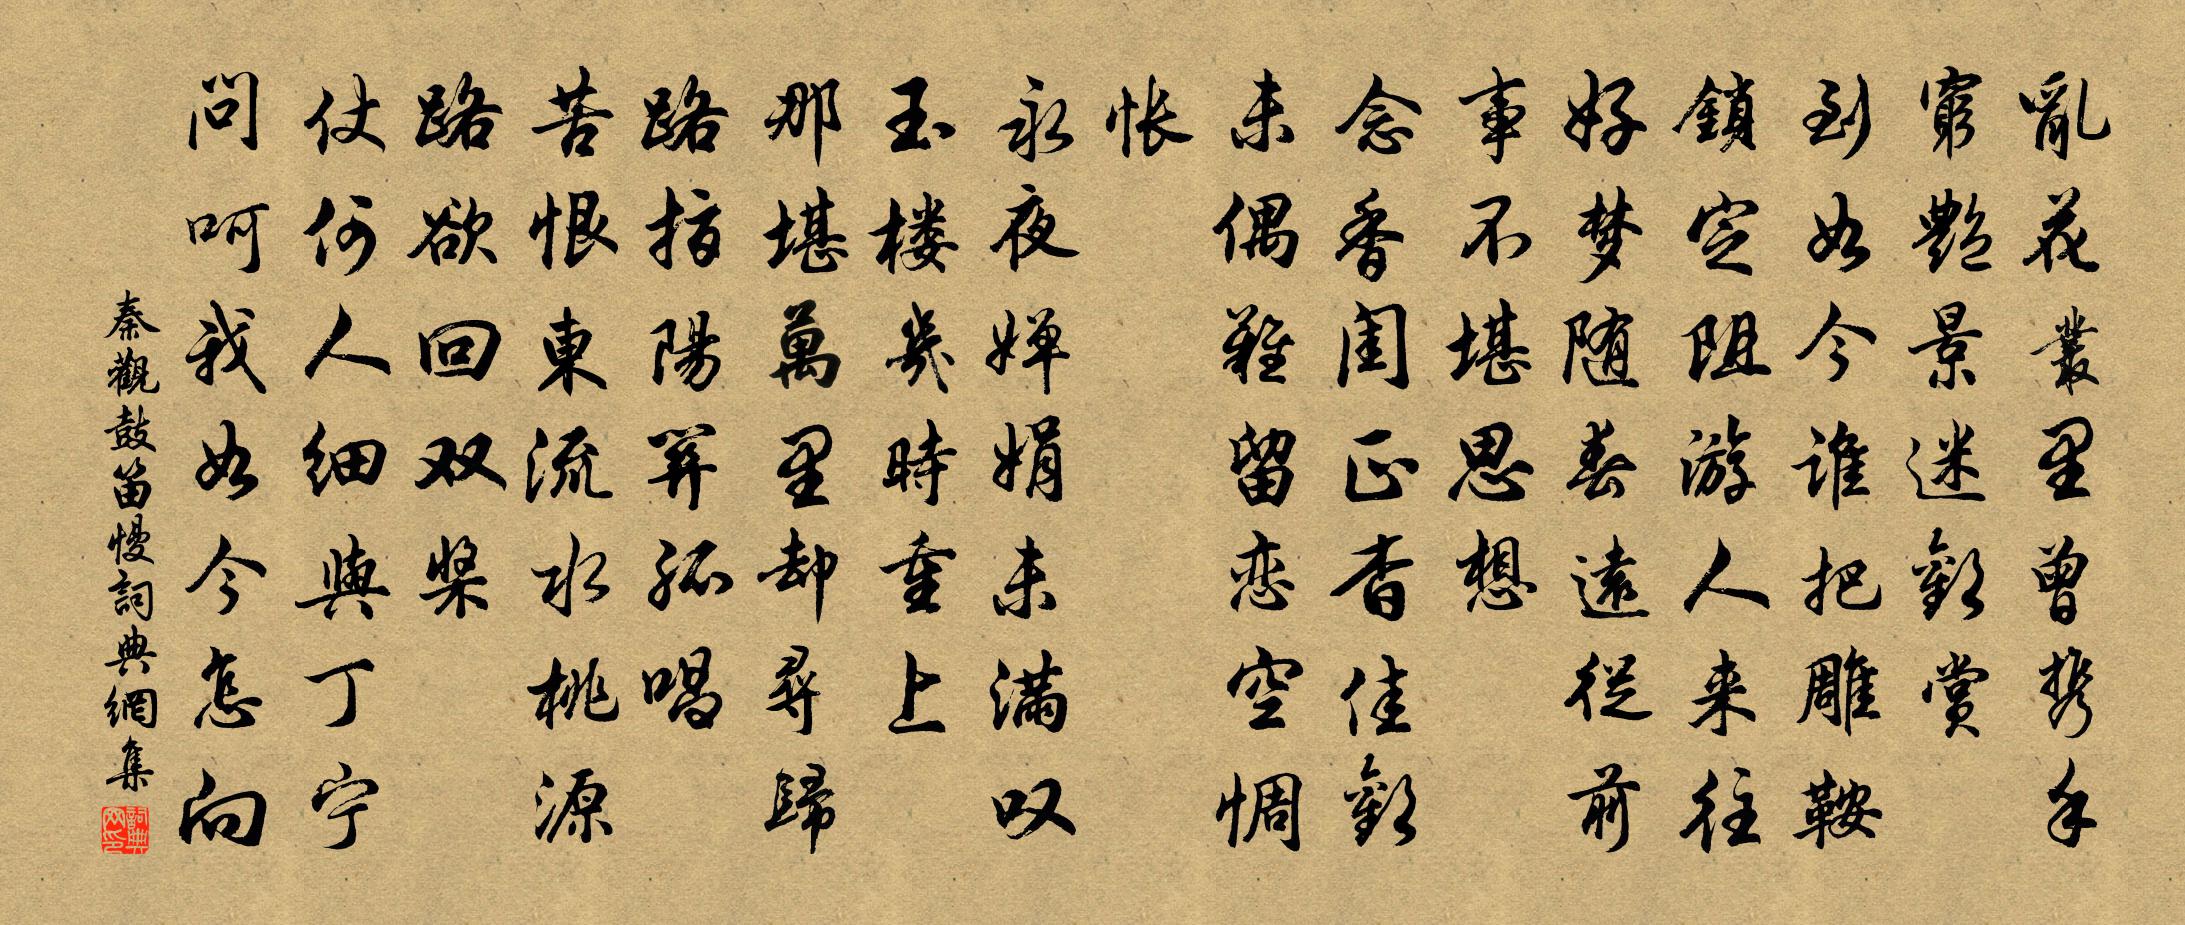 亂花叢里曾携手
窮艷景迷歡賞
到如今誰把雕鞍
鎖定阻游人来往
好梦随春遠從前
事不堪思想
念香闺正杳佳歡
未偶難留恋空惆
怅
永夜婵娟未满叹
玉楼幾時重上
那堪萬里却尋歸
路指陽關孤唱
苦恨東流水桃源
路欲回双桨
仗何人细與丁宁
问呵我如今怎向
秦觀鼓笛慢詞典網集
詞典网印